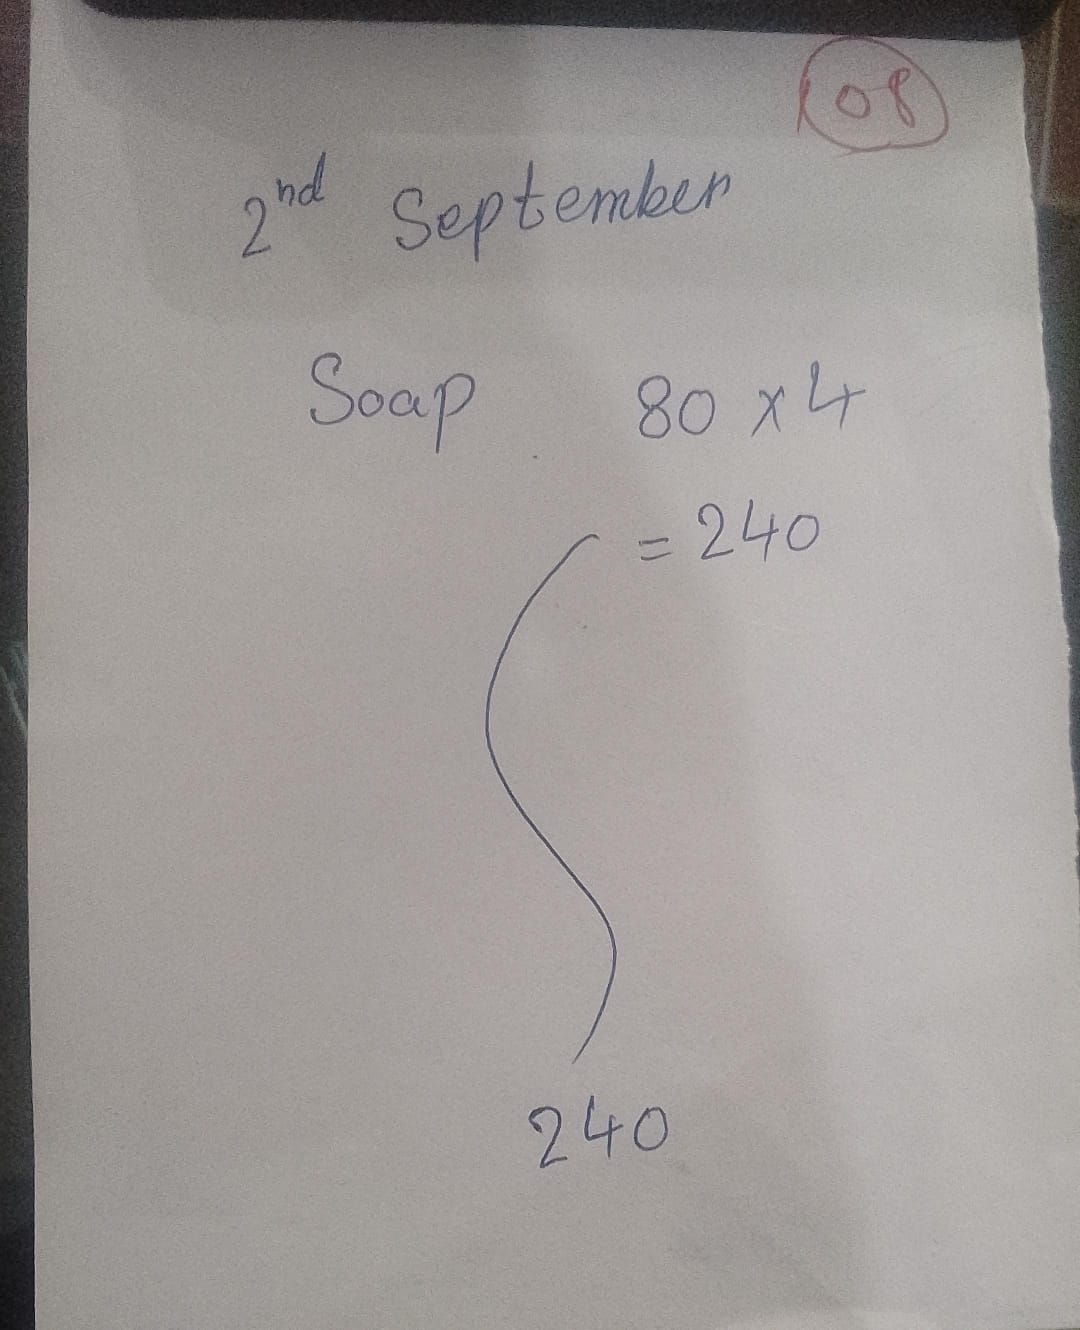 08
2nd September
Soap 80 x 4
= 240
240